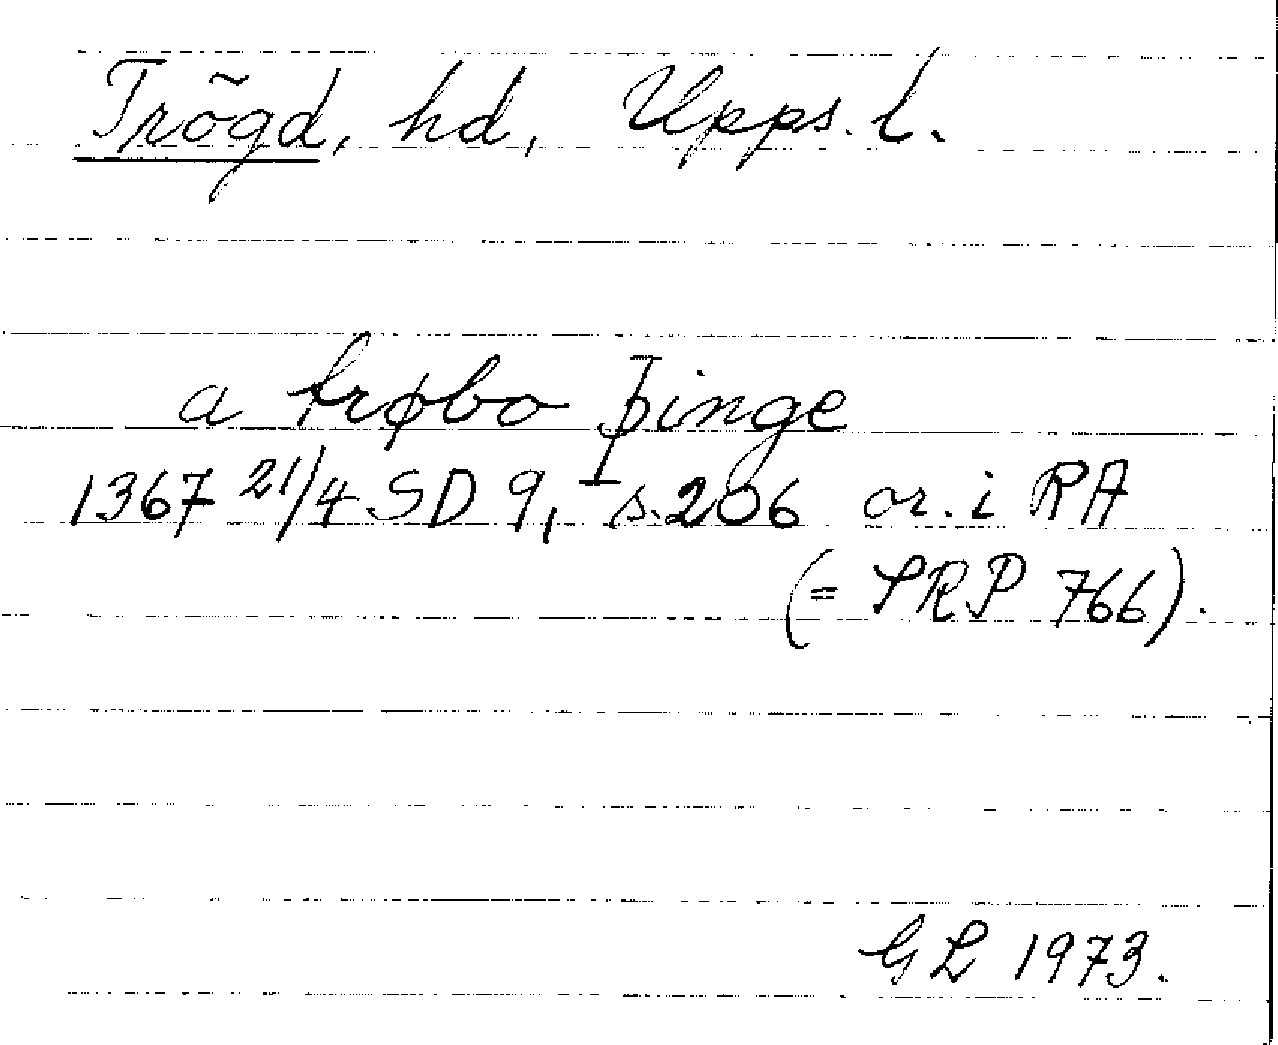 Trögd, hd, Upps. l.
a trøbo þinge
1367 21/4 SD 9, s. 206 or. i RA
(= SRP 766).
GL 1973.